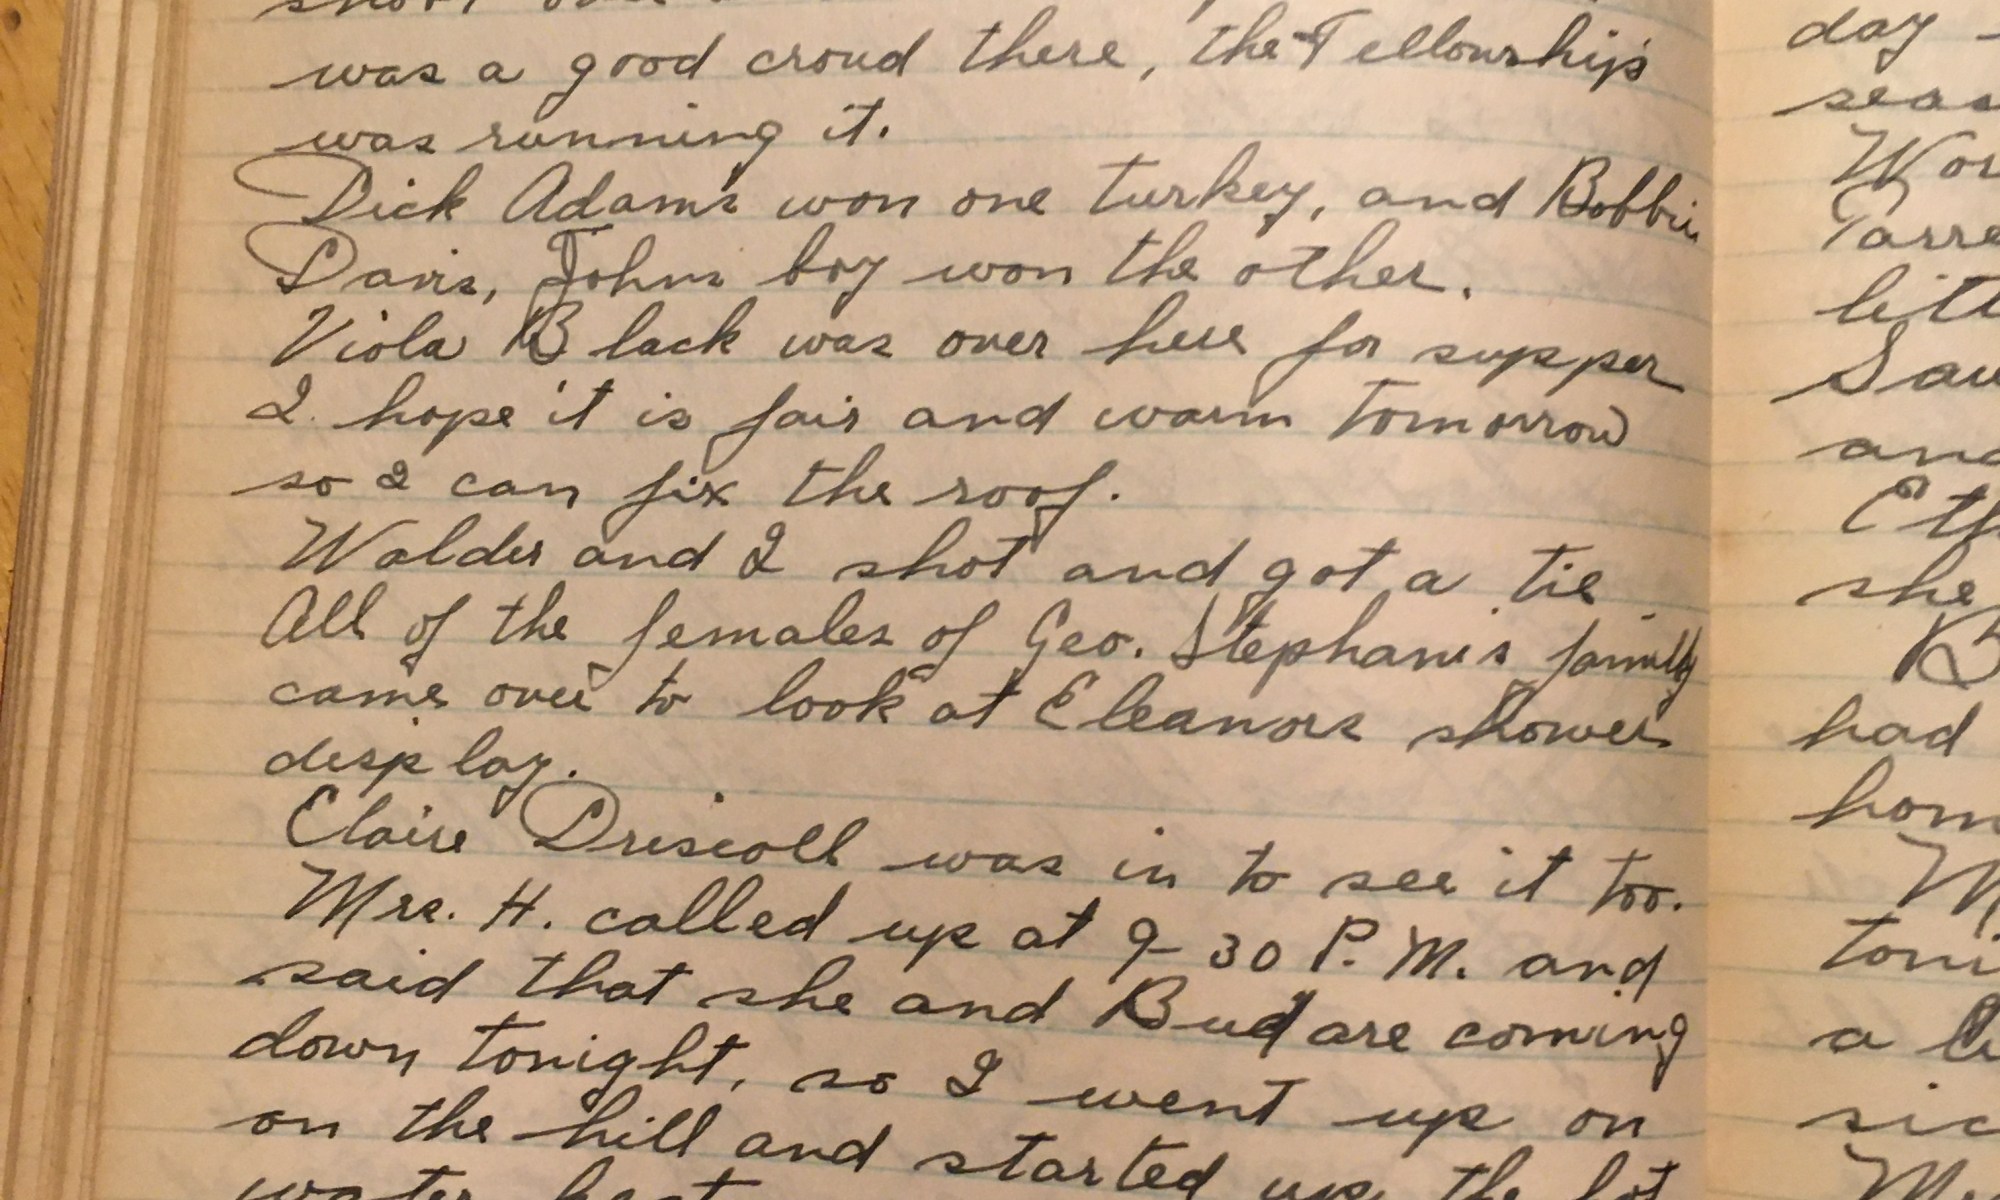 was a good croud there, the Fellowship's
was running it.
Dick Adams won one turkey, and Bobbie
Davis, Johns boy won the other.
Viola Black was over here for supper
I hope it is fair and warm tomorrow
so I can fix the roof.
Walder and I shot and got a tie
All of the females of Geo. Stephanis family
came over to look at Eleanors shower
display.
Claire Driscoll was in to see it too.
Mrs. H. called up at 9-30 P.M. and
said that she and Bud are coming
down tonight, so I went up on
on the hill and started up the hot
water heat
day
Sau
and
she
had
a